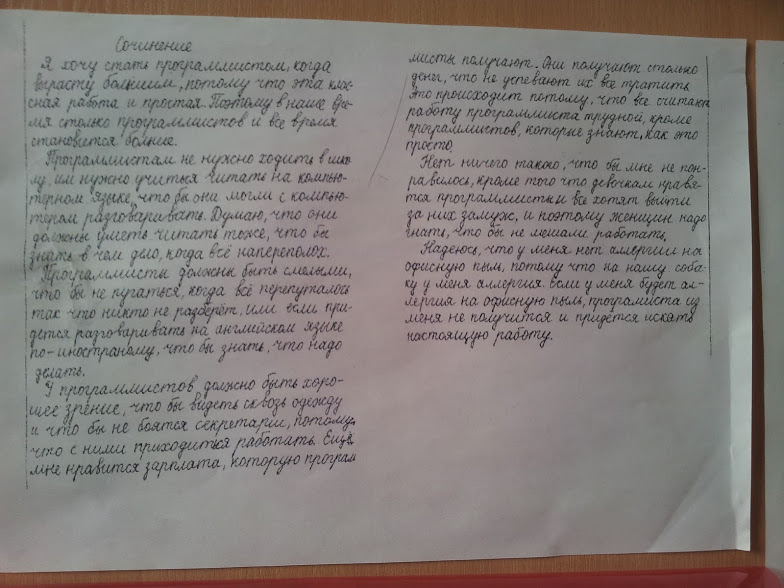 Сочинение
Я хочу стать программистом, когда
вырасту большим, потому что эта клас-
сная работа и простая. Поэтому в наше вре-
мя столько программистов и все время
становится больше.
Программистам не нужно ходить в шко-
лу, им нужно учиться читать на компью-
терном языке, что бы они могли с компью-
тером разговаривать. Думаю, что они
должны уметь читать тоже, что бы
знать в чем дело, когда всё наперополох.
Программисты должны быть смелыми,
что бы не пугаться, когда всё перепуталось
так что никто не разберёт, или если при-
дется разговаривать на английском языке
по-иностраному, что бы знать, что надо
делать.
У программистов должно быть хоро-
шее зрение, что бы видеть сквозь одежду
и что бы не боятся секретарши, потому,
что с ними приходиться работать. Ещё
мне нравится зарплата, которую програм
мисты получают. Они получают столько
денег, что не успевают их все тратить.
Это происходит потому, что все считают
работу программиста трудной, кроме
программистов, которые знают, как это
просто.
Нет ничего такого, что бы мне не пон-
равилось, кроме того что девочкам нравя-
тся программисты и все хотят выйти
за них замуж, и поэтому женщин надо
гнать, что бы не мешали работать.
Надеюсь, что у меня нет аллергии на
офисную пыль, потому что на нашу соба-
ку у меня аллергия. если у меня будет ал-
лергия на офисную пыль, програмиста из
меня не получится и придётся искать
настоящую работу.